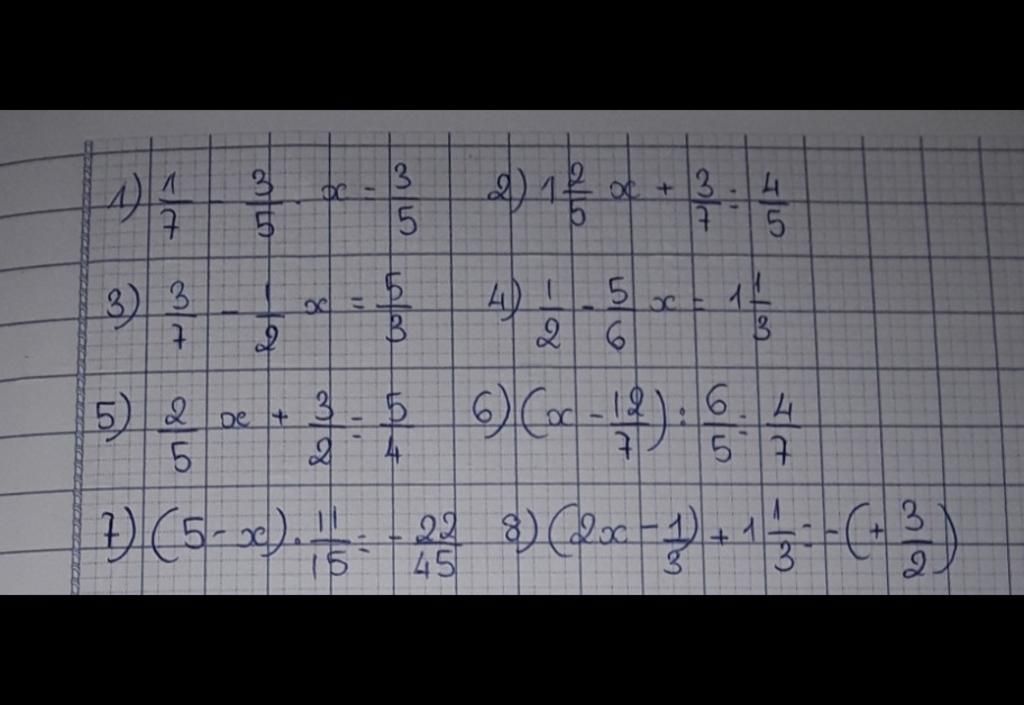 1) 1/7 - 3/5 · x = 3/5 2) 1 2/5 x + 3/7 = 4/5
3) 3/7 - 1/2 x = 5/3 4) 1/2 - 5/6 x = 1 1/3
5) 2/5 x + 3/2 = 5/4 6) (x - 12/7) : 6/5 = 4/7
7) (5 - x) · 11/15 = - 22/45 8) (2x - 1/3) + 1 1/3 = - (+ 3/2)